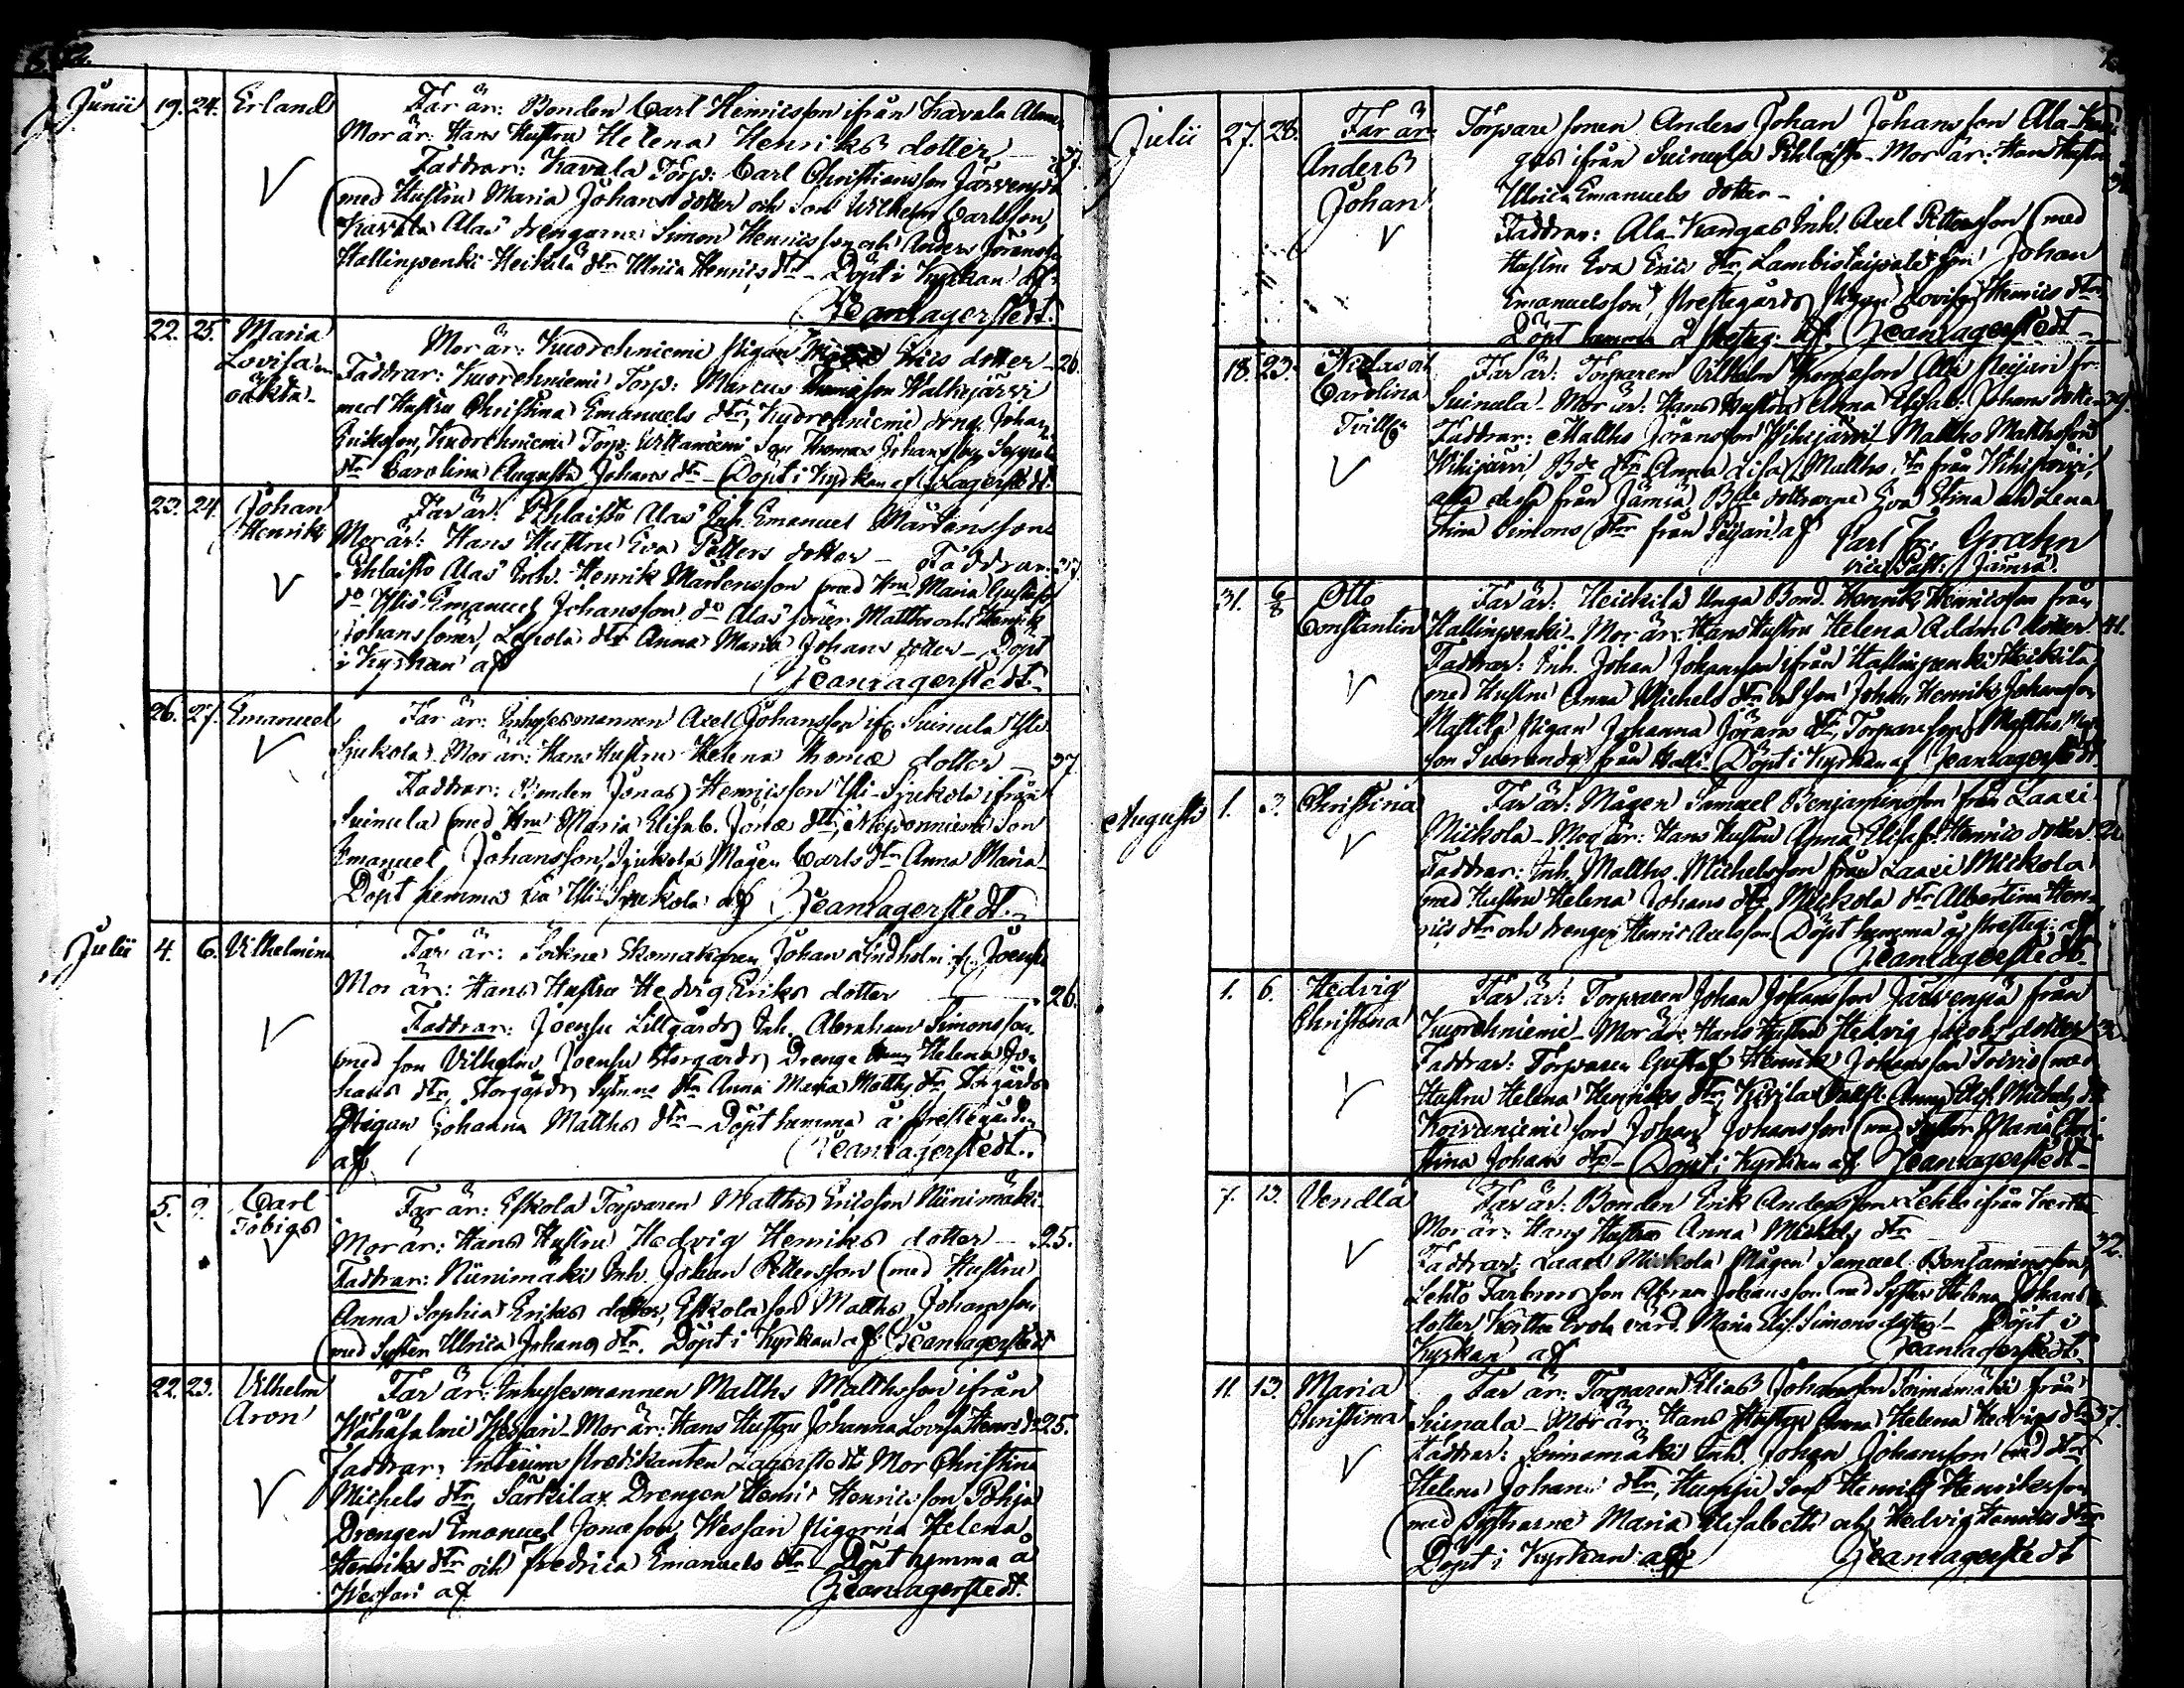 Junii 19. 24. Erland Far är: Bonden Carl Henricsson ifrån Kavala
Mor är: Hans Hustru Helena Henriks dotter 37.
Faddrar: Kavala Torp: Carl Christiansson Järvenpää
med Hustru Maria Johans dotter och son Wilhelm Carlsson,
Kavala Alas drengarne Simon Henricsson och Anders
Hallinpenki Heikilä dtr Ulrica Henrics dtr - Döpt i Kyrkan af
Jean Lagerstedt.
22. 25. Maria Lovisa oäkta Mor är: Kuorehniemi Pigan Erics dotter 26.
Faddrar: Kuorehniemi Torp: Marcus Thomasson Walkejärvi
med Hustru Christina Emanuels dtr, Kuorehniemi dreng. Johan
Eriksson, Kuorehniemi Torp: son Thomas Johansson
dtr Carolina Augusta Johans dtr - Döpt i Kyrkan af J. Lagerstedt
23. 24. Johan Henrik Far är: Pihlaisto Alas Inh. Emanuel Mårtensson
Mor är: Hans Hustru Eva Petters dotter - Faddrar: 37.
Pihlaisto Alas Inh. Henrik Mårtensson med Hru Maria Gustafs
do Ylis Emanuel Johansson, do Alas söner Matths och Henrik
Johanssöner, dtr Anna Maria Johans dotter - Döpt
i Kyrkan af
Jean Lagerstedt
26. 27. Emanuel Far är: Inhysesmannen Axel Johansson ifr. Suinula Yli
Sjukola. Mor är: Hans Hustru Helena Thomæ dotter 37
Faddrar: Bonden Jonas Henricsson Yli-Sjukola ifrån
Suinula med Hru Maria Elisab. Jonæ dtr, son
Emanuel Johansson, Sjukola Mågen Carls dtr Anna Maria
Döpt hemma i Yli-Sjukola af Jean Lagerstedt.
Julii 4. 6. Vilhelmina Far är: Sockne Skomakaren Johan Lindholm ifr. Joensu
Mor är: Hans Hustru Hedvig Eriks dotter 26.
Faddrar: Joensu Lillgårds Inh. Abraham Simonsson
med son Vilhelm, Joensu Storgårds Drenge Helena Jo-
hans dtr, Storgårds dtr Anna Maria Matths dtr, Storgårds
Pigan Johanna Matths dtr - Döpt hemma å Prestegården
af Jean Lagerstedt.
5. 9. Carl Tobias Far är: Eskola Torparen Matths Ericsson Niinimäki
Mor är: Hans Hustru Hedvig Henriks dotter 25.
Faddrar: Niinimäki Inh. Johan Pettersson med Hustru
Anna Sophia Eriks dotter, Eskola son Matths Johansson
med Syster Ulrica Johans dtr. Döpt i Kyrkan af Jean Lagerstedt
22. 23. Vilhelm Aron Far är: Inhysesmannen Matths Matthsson ifrån
Wåhäsalmi Wessari. Mor är: Hans Hustru Johanna Lovisa Henr. dr 25.
Faddrar: Interims Predikanten Lagerstedts Mor Christina
Michels dtr, Särkilax Drengen Henric Henricsson, Pohja
Drengen Emanuel Jonæson, Wessari Pigorna Helena
Henriks dtr och Fredrica Emanuels dtr - Döpt hemma å
Wessari af Jean Lagerstedt.
Julii 27. 28. Anders Johan Far är: Torpare sonen Anders Johan Johansson Ala-Kan-
gas ifrån Suinula Pihlaisto. Mor är: Hans Hustru
Ulrica Emanuels dotter
Faddrar: Ala-Kangas Inh. Axel Pettersson med
Hustru Eva Erics dtr, son Johan
Emanuelsson, Prestegårds Pigan Lovisa Henrics dtr
Döpt hemma å Presteg. af Jean Lagerstedt
18. 23. Niclas och Carolina Tvilling Far är: Torparen Vilhelm Thomasson Ala Peijari fr.
Suinula. Mor är: Hans Hustru Anna Elisab. Johans dotter 39.
Faddrar: Matths Jöransson Wihijärvi Matths Matthsson
Wihijärvi, Bde dtr Anna Lisa Matths dtr från Wihijärvi,
alla dessa från Jämsä, Bde döttrarne Eva Stina och Lena
Stina Simons dtr från Peijari af Carl Fr: Grahn
vice Past: i Jämsä.
31. 6/8 Otto Constantin Far är: Heickilä Unga Bond. Henrik Henricsson från
Hallinpenki. Mor är: Hans Hustru Helena Adams dotter 41.
Faddrar: Inh. Johan Johansson ifrån Hallinpenki Heikilä
med Hustru Anna Michels dtr och son Johan Henrik Johansson
Mattila Pigan Johanna Jörans dtr, Torpareson Matths
son från Halli. Döpt i Kyrkan af Jean Lagerstedt
Augusti 1. 3. Christina Far är: Mågen Samuel Benjaminsson från Laaxi
Mickola. Mor är: Hans Hustru Anna Elisab. Henrics dotter
Faddrar: Inh. Matths Michelsson från Laaxi Mickola
med Hustru Helena Johans dtr, Mickola dtr Albertina Hen-
rics dtr och drengen Henric Axelsson. Döpt hemma å Presteg. af
Jean Lagerstedt
1. 6. Hedvig Christina Far är: Torparen Johan Johansson Järvenpää från
Kuorehniemi. Mor är: Hans Hustru Hedvig Jacobs dotter
Faddrar: Torparen Gustaf Henrik Johansson med
Hustru Helena Henriks dtr, Anna Elis. Michels dtr
Koivuniemi son Johan Johansson med Syster Maria Chri-
stina Johans dtr - Döpt i Kyrkan af Jean Lagerstedt
7. 13. Vendla Far är: Bonden Erik Andersson Lehto ifrån
Mor är: Hans Hustru Anna Michels dtr 32.
Faddrar: Laaxi Mickola Mågen Samuel Benjaminsson,
Lehto Farbrors son Abram Johansson med Syster Helena Johans
dotter, Maria Elis. Simons dotter - Döpt i
Kyrkan af Jean Lagerstedt
11. 13. Maria Christina Far är: Torparen Elias Johansson Soimamäki från
Suinula. Mor är: Hans Hustru Anna Helena Hedvigs dtr 37.
Faddrar: Soimamäki Inh. Johan Johansson med dtr
Helena Johans dtr, son Henrik Henriksson
med Systrarne Maria Elisabeth och Hedvig Henriks dtr
Döpt i Kyrkan af Jean Lagerstedt